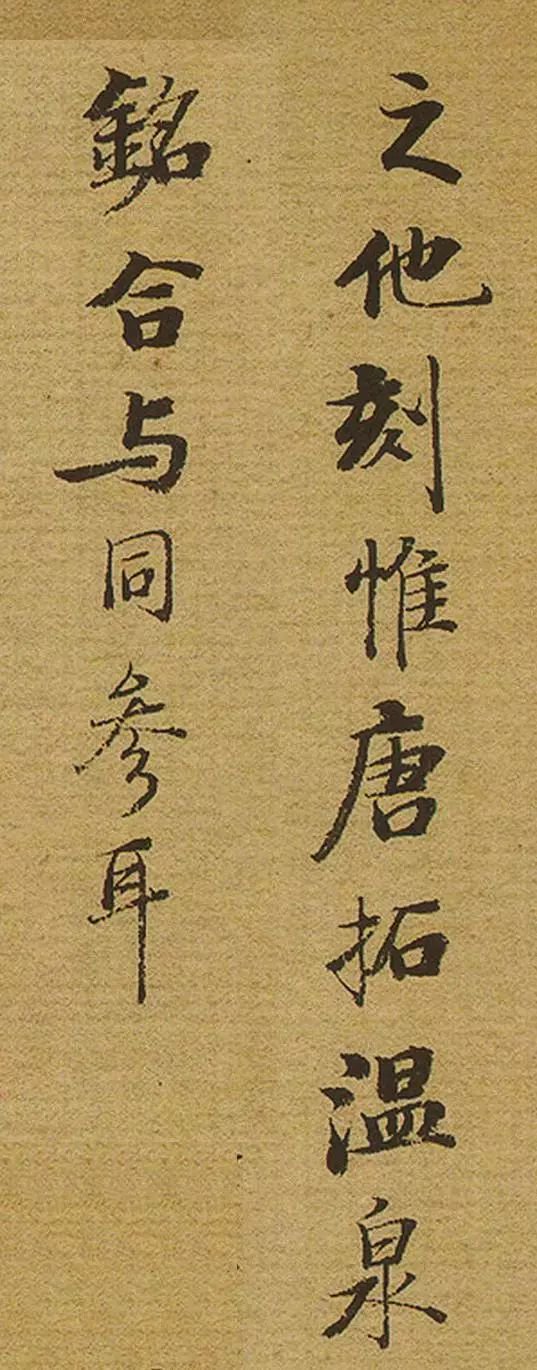 之他刻惟唐拓温泉
銘合与同參耳